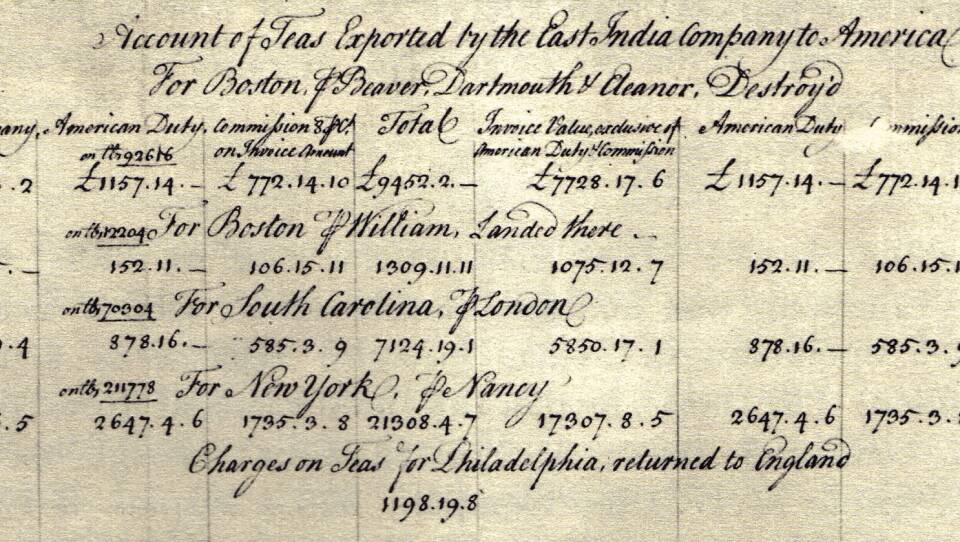 Account of Teas Exported by the East India Company to America
For Boston, ⅌ Beaver, Dartmouth & Eleanor, Destroy'd
any, American Duty, Commission 8 ⅌ Ct. Total Invoice Value, exclusive of American Duty Commission
on lb 92616 on Invoice Amount American Duty & Commission
.2 £1157.14.— £772.14.10 £9452.2.— £7728.17.6 £1157.14.— £772.14.1
on lb 12204 For Boston ⅌ William, Landed there —
.— 152.11.— 106.15.11 1309.11.11 1075.12.7 152.11.— 106.15.1
on lb 70304 For South Carolina, ⅌ London
.4 878.16.— 585.3.9 7124.19.1 5850.17.1 878.16.— 585.3.9
on lb 211778 For New York, ⅌ Nancy
.5 2647.4.6 1735.3.8 21308.4.7 17307.8.5 2647.4.6 1735.3.
Charges on Teas for Philadelphia, returned to England
1198.19.8